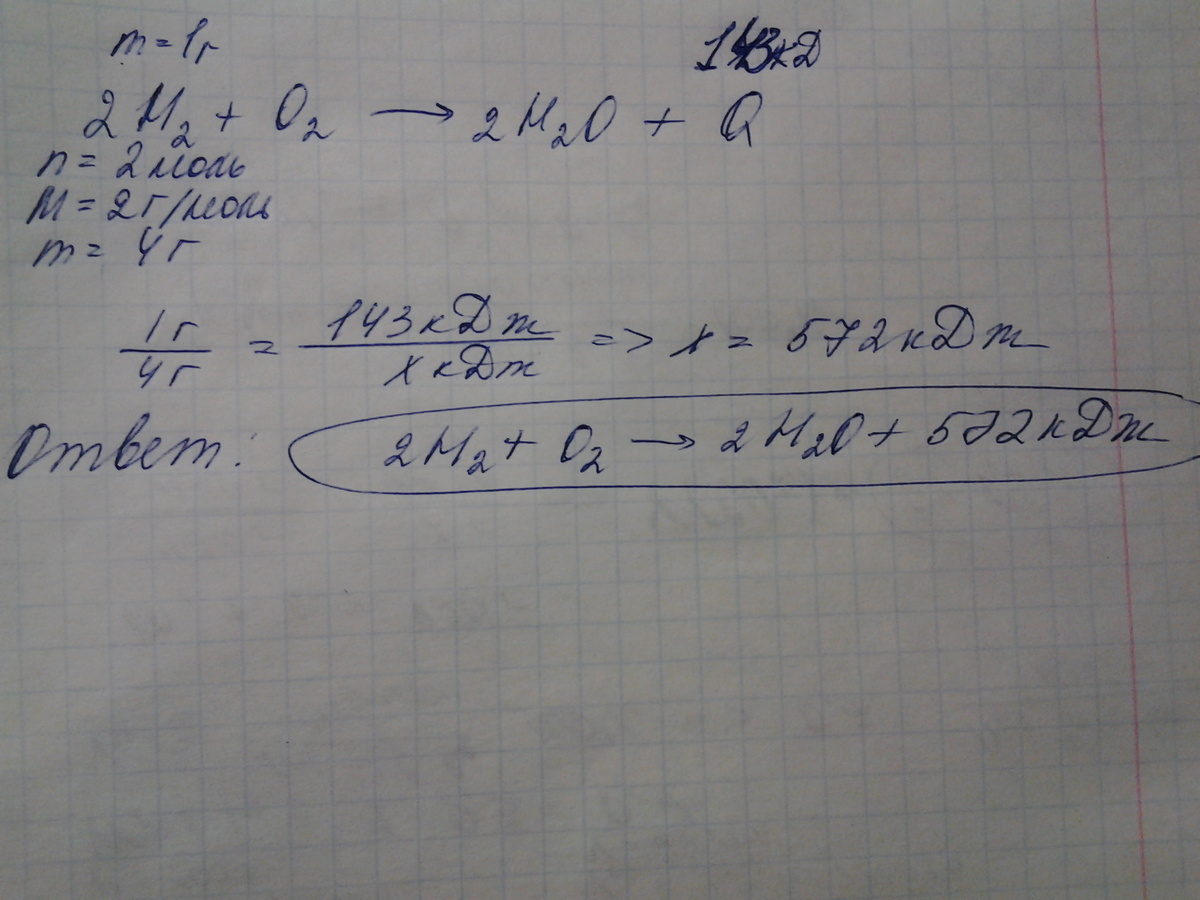 m = 1г 143кД
2H₂ + O₂ → 2H₂O + Q
n = 2 моль
M = 2г/моль
m = 4 г
1г/4г = 143кДж/x кДж => x = 572кДж
Ответ: 2H₂ + O₂ → 2H₂O + 572кДж